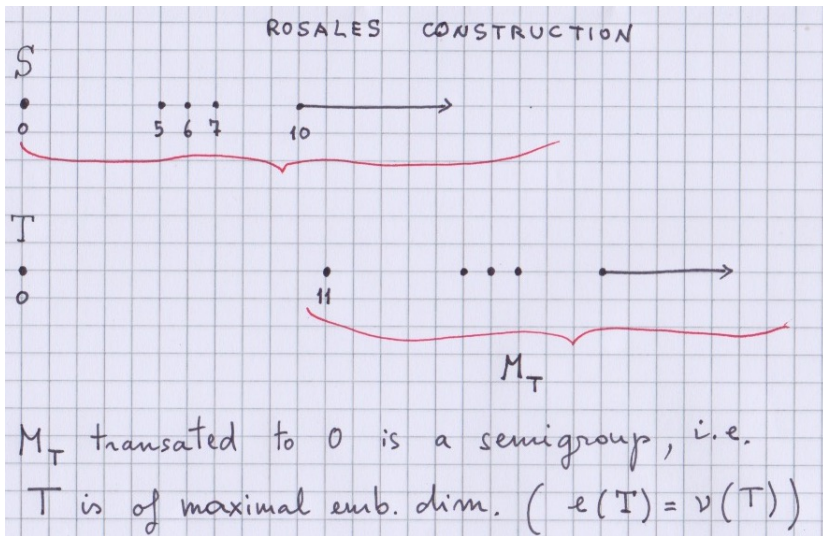 ROSALES CONSTRUCTION
S
0 5 6 7 10
T
0 11
M_T
M_T transated to 0 is a semigroup, i.e.
T is of maximal emb. dim. ( e(T) = ν(T) )